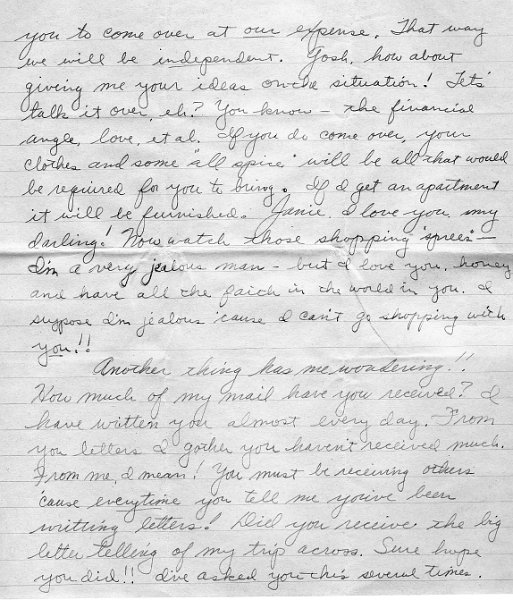 you to come over at our expense. That way
we will be independent. Gosh, how about
giving me your ideas on the situation! Let's
talk it over, eh? You know - the financial
angle, love, et al. If you do come over, your
clothes and some "all spice" will be all that would
be required for you to bring. If I get an apartment
it will be furnished. Janie, I love you, my
darling! Now watch those shopping "sprees" -
I'm a very jealous man - but I love you, honey
and have all the faith in the world in you. I
suppose I'm jealous 'cause I can't go shopping with
you!!
Another thing has me wondering!!
How much of my mail have you received? I
have written you almost every day. From
you letters I gather you haven't received much.
From me, I mean! You must be receiving others
'cause everytime you tell me you've been
writting letters! Did you receive the big
letter telling of my trip across. Sure hope
you did!! I've asked you this several times.